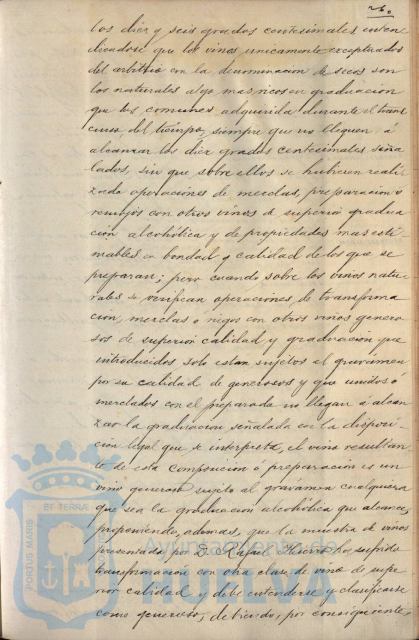 26.
los diez y seis grados centesimales enten
diendose que los vinos unicamente exceptuados
del arbitrio con la denominacion de secos son
los naturales algo mas ricos en graduacion
que los comunes, adquirida durante el trans
curso del tiempo, siempre que no lleguen á
alcanzar los diez grados centesimales seña
lados, sin que sobre ellos se hubiesen reali
zado operaciones de mezclas, preparacion ó
remojos con otros vinos de superior gradua
cion alcohólica y de propiedades mas esti
mables en bondad y calidad de los que se
preparan; pero cuando sobre los vinos natu
rales se verifican operaciones de transforma
cion, mezclas ó riegos con otros vinos genero
sos de superior calidad y graduacion que
introducidos solo estan sujetos al gravámen
por su calidad de generosos y que unidos ó
mezclados con el preparado no llegan á alcan
zar la graduacion señalada en la disposi
cion legal que se interpreta, el vino resultan
te de esta composicion ó preparacion es un
vino generoso sujeto al gravámen cualquiera
que sea la graduacion alcohólica que alcance,
proponiendo, ademas, que la muestra de vinos
presentada por D. Rafael Hierro ha sufrido
transformacion con otra clase de vino de supe
rior calidad y debe entenderse y clasificarse
como generoso, debiendo, por consiguiente,
PORTUS MARIS
ET TERRAE
Ayuntamiento de
HUELVA